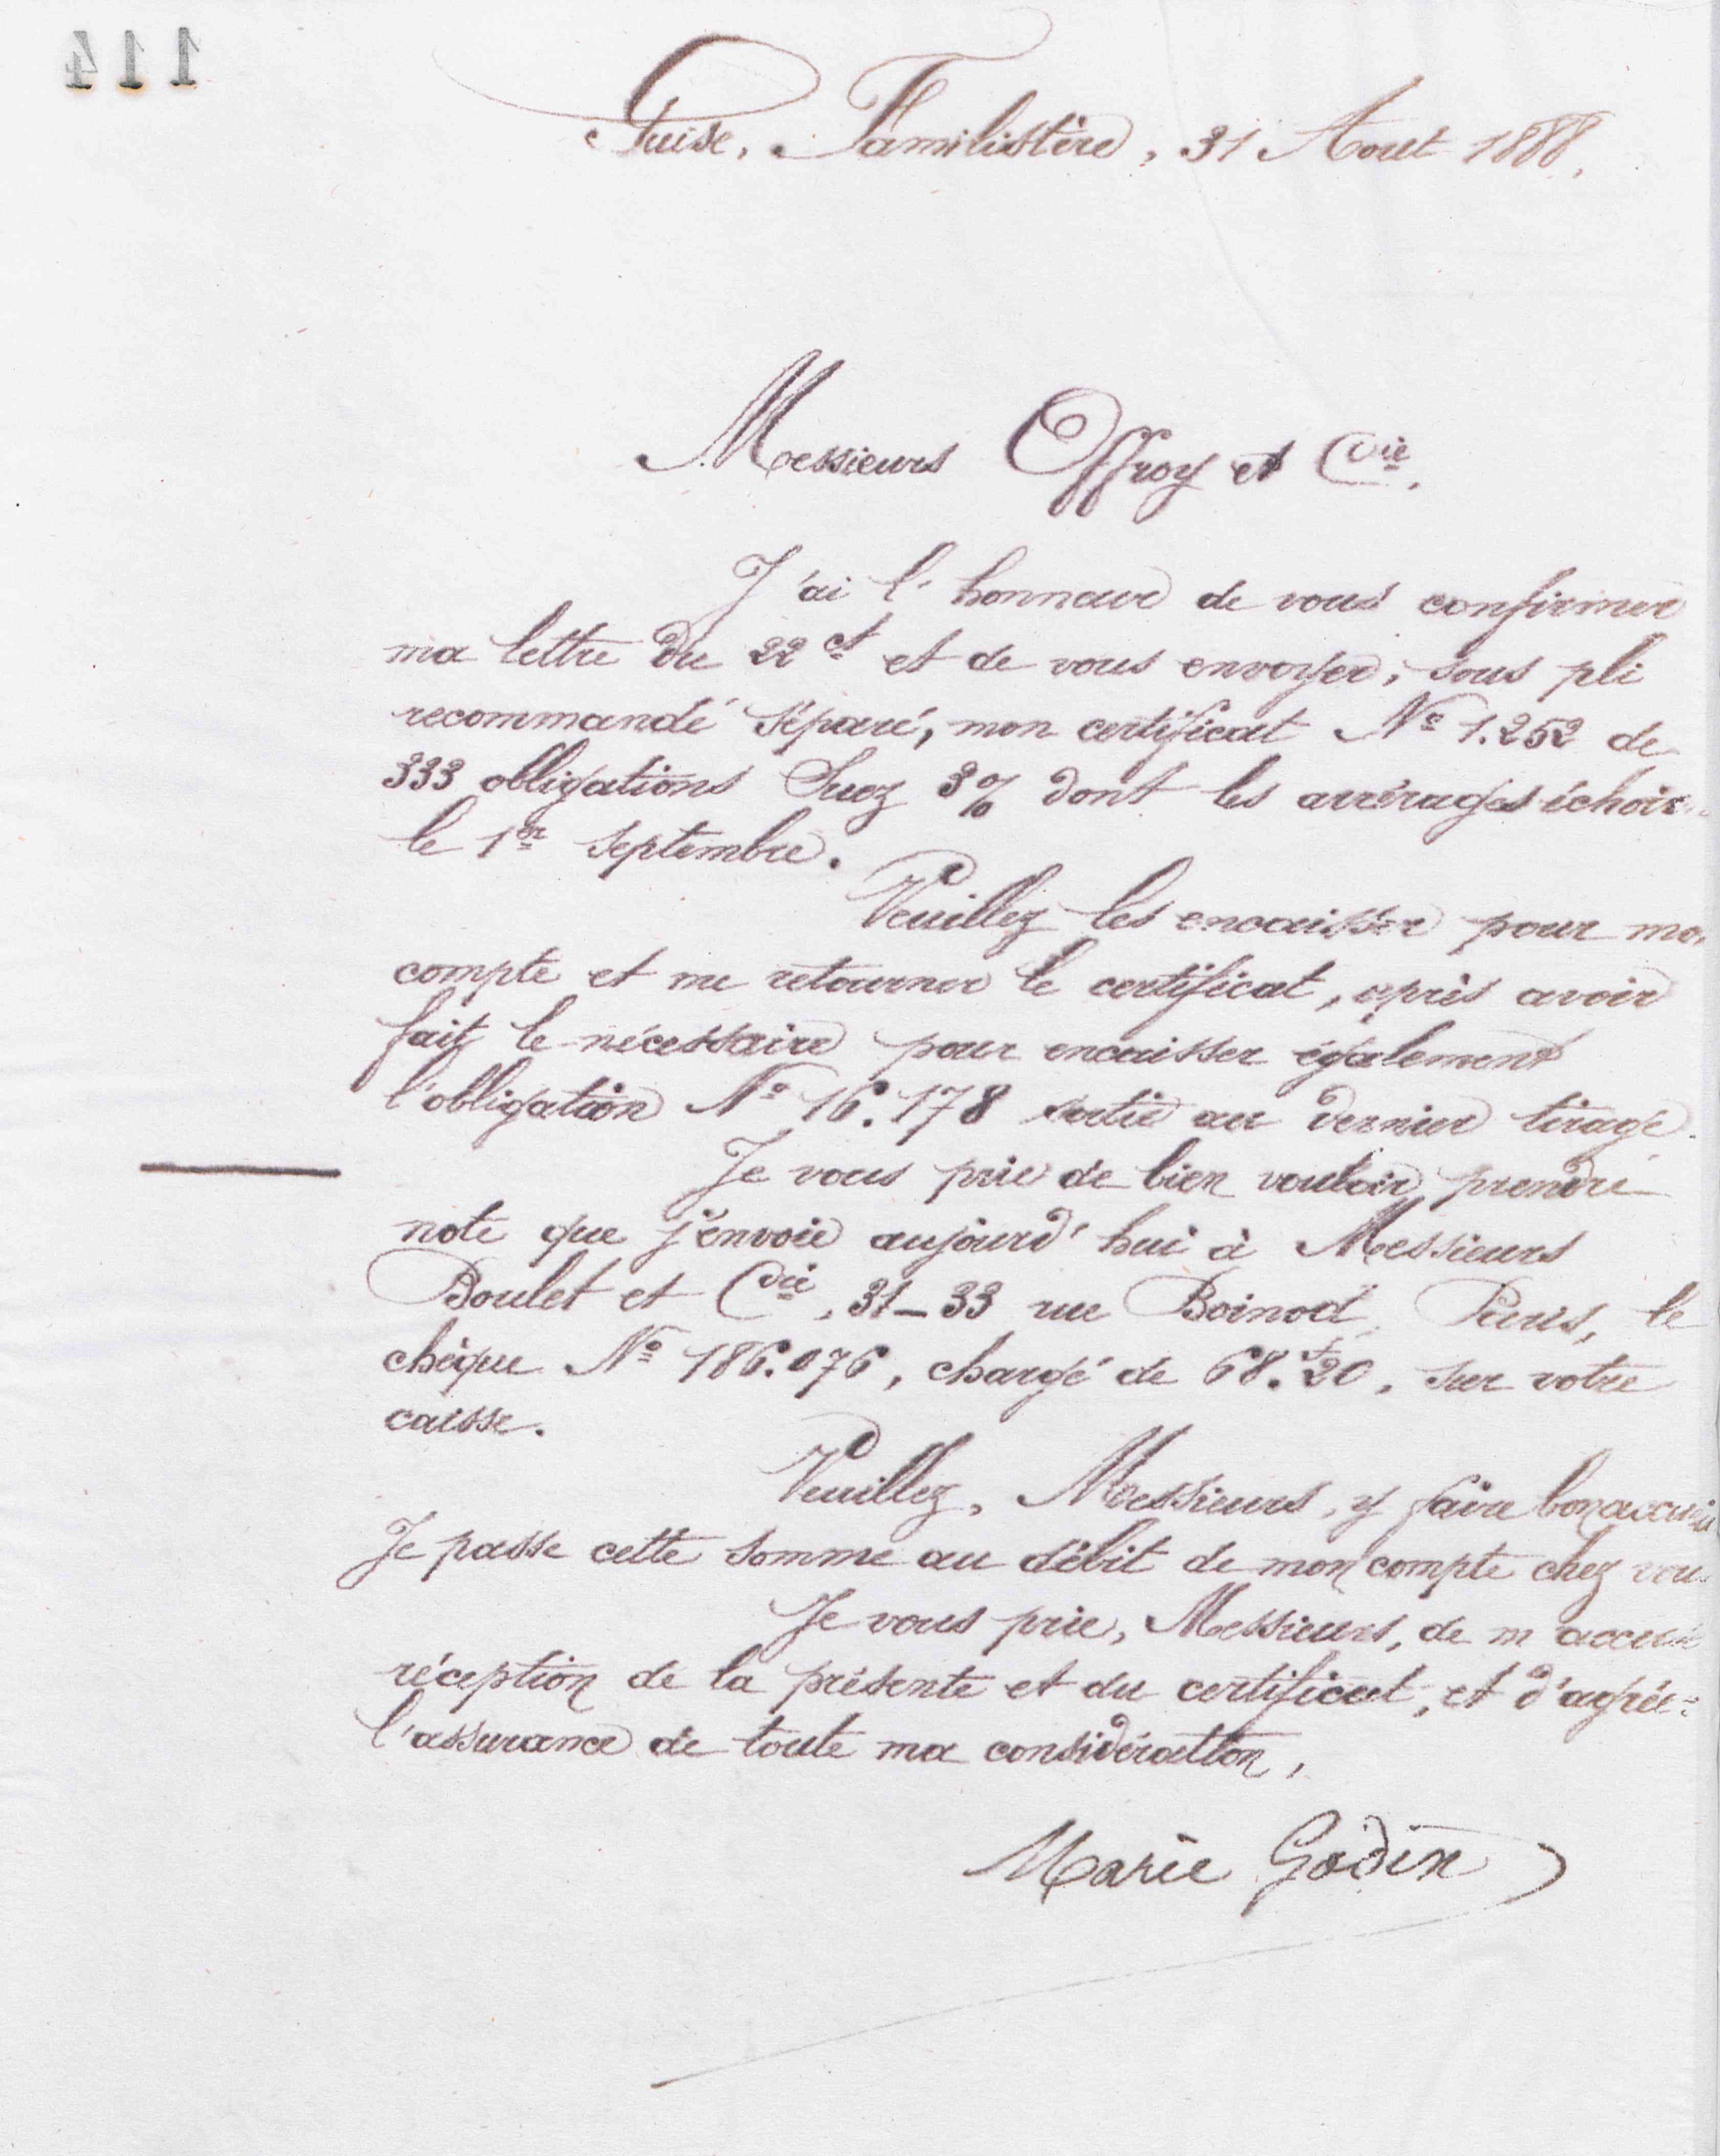 114
Guise, Familistère, 31 Aout 1888,
Messieurs Offroy et Cie.
J'ai l'honneur de vous confirmer
ma lettre du 22 ct et de vous envoyer, sous pli
recommandé séparé, mon certificat No 1.252 de
333 obligations Suez 3% dont les arrérages échoi
le 1er septembre.
Veuillez les encaisser pour mo
compte et me retourner le certificat, après avoir
fait le nécessaire pour encaisser également
l'obligation No 16.178 sortie au dernier tirage.
Je vous prie de bien vouloir prendre
note que j'envoie aujourd'hui à Messieurs
Boulet et Cie, 31-33 rue Boinod, Paris, le
chèque No 186.076, chargé de 68.f20, sur votre
caisse.
Veuillez, Messieurs, y faire bon accueil
Je passe cette somme au débit de mon compte chez vou
Je vous prie, Messieurs, de m'accuse
réception de la présente et du certificat, et d'agrée
l'assurance de toute ma considération,
Marie Godin